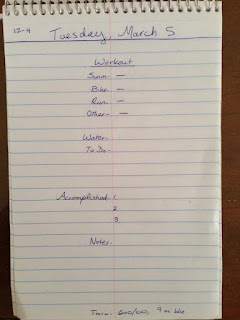 12-4
Tuesday, March 5
Workout
Swim- —
Bike- —
Run- —
Other- —
Water-
To Do-
Accomplished- 1.
2.
3.
Notes-
600/100, 9 mi bike